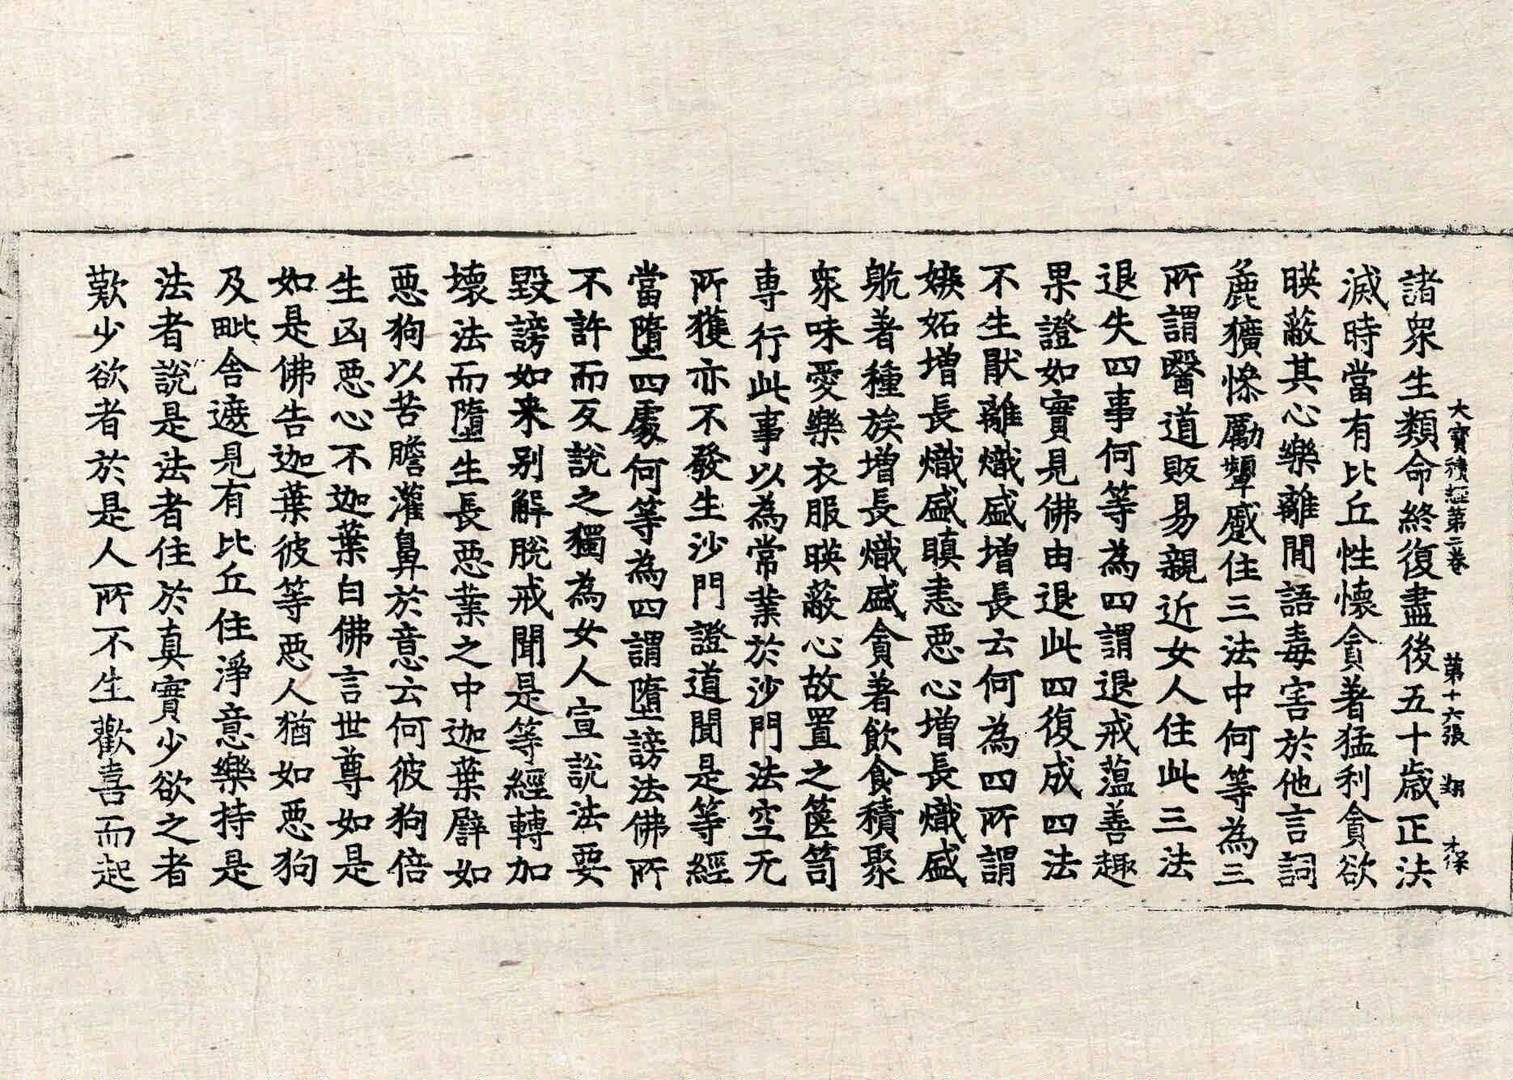 大寶積經第二卷　第十六張　翔　才保
諸衆生類命終復盡後五十歲正法
滅時當有比丘性懷貪著猛利貪欲
暎蔽其心樂離閒語毒害於他言詞
麁獷慘勵顰蹙住三法中何等為三
所謂醫道販易親近女人住此三法
退失四事何等為四謂退戒薀善趣
果證如實見佛由退此四復成四法
不生猒離熾盛增長云何為四所謂
嫉妬增長熾盛瞋恚惡心增長熾盛
躭著種族增長熾盛貪著飲食積聚
衆味愛樂衣服暎蔽心故置之篋笥
專行此事以為常業於沙門法空无
所獲亦不發生沙門證道聞是等經
當墮四處何等為四謂墮謗法佛所
不許而反說之獨為女人宣說法要
毀謗如来别解脫戒聞是等經轉加
壞法而墮生長惡業之中迦葉譬如
惡狗以苦膽灌鼻於意云何彼狗倍
生凶惡心不迦葉白佛言世尊如是
如是佛告迦葉彼等惡人猶如惡狗
及毗舍遮見有比丘住淨意樂持是
法者說是法者住於真實少欲之者
歎少欲者於是人所不生歡喜而起